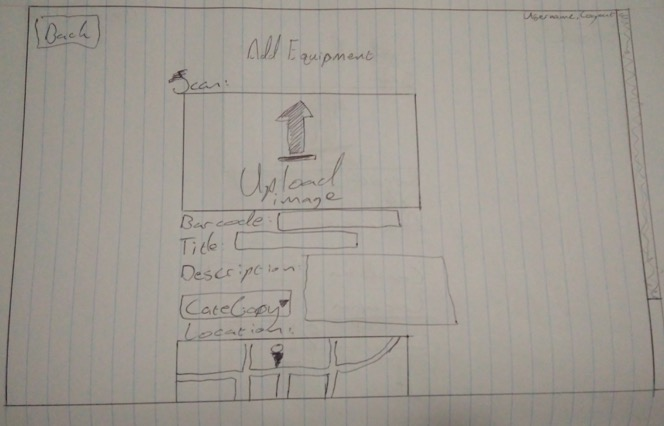 Username, Logout
Back
Add Equipment
Scan:
Upload
image
Barcode:
Title:
Description
Category
Location: